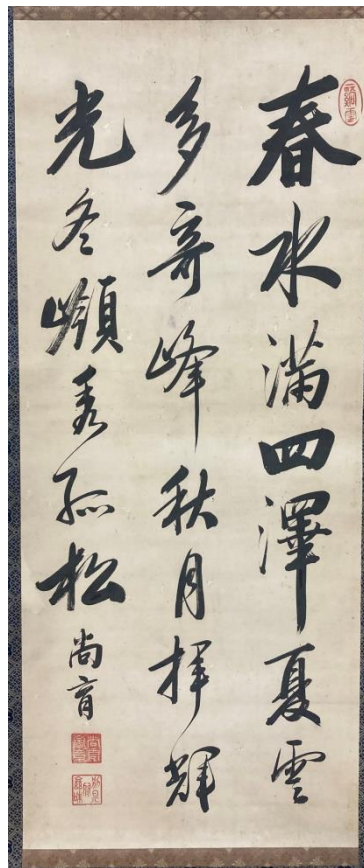 春水滿四澤夏雲
多奇峰秋月揮輝
光冬嶺秀孤松
尚育